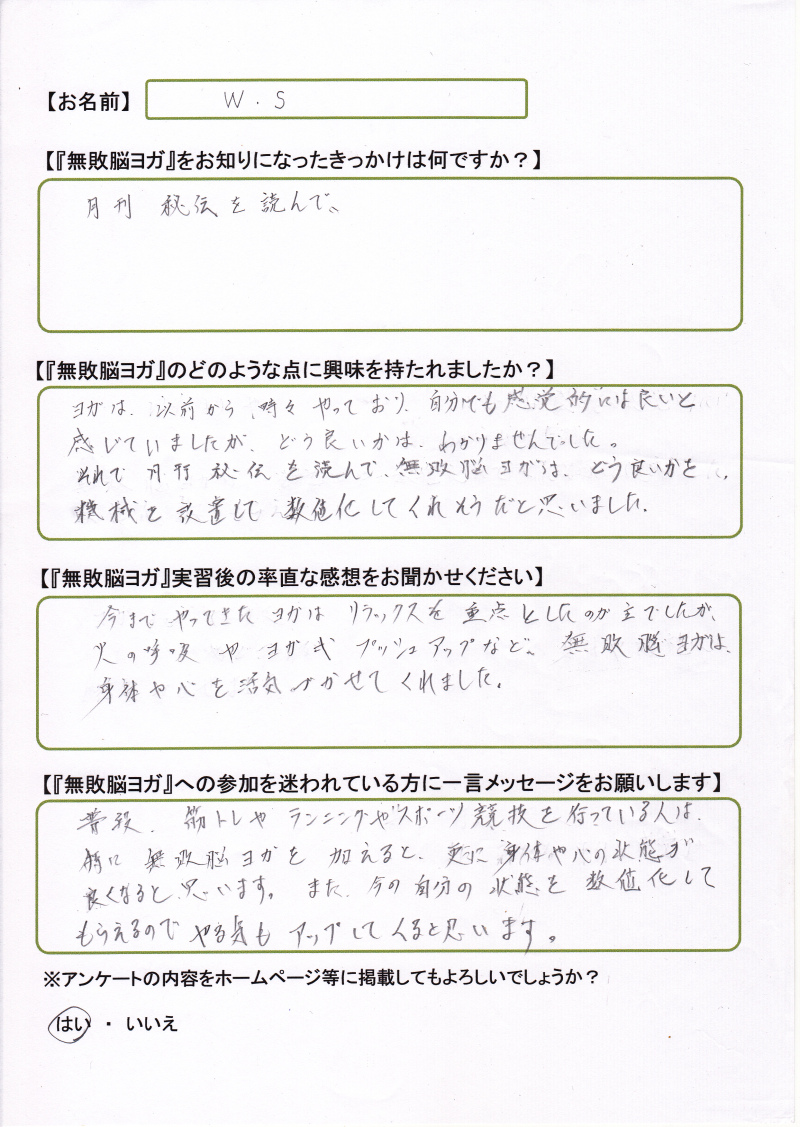 【お名前】 W.S
【『無敗脳ヨガ』をお知りになったきっかけは何ですか？】
月刊 秘伝を読んで、
【『無敗脳ヨガ』のどのような点に興味を持たれましたか？】
ヨガは、以前から、時々やっており、自分でも感覚的には良いと
感じていましたが、どう良いかは、わかりませんでした。
それで月刊秘伝を読んで、無敗脳ヨガは、どう良いかを、
機械を設置して数値化してくれそうだと思いました。
【『無敗脳ヨガ』実習後の率直な感想をお聞かせください】
今までやってきたヨガはリラックスを重点としたのが主でしたが、
火の呼吸やヨガ式プッシュアップなど、無敗脳ヨガは、
身体や心を活気づかせてくれました。
【『無敗脳ヨガ』への参加を迷われている方に一言メッセージをお願いします】
普段、筋トレやランニングやスポーツ競技を行っている人は、
特に無敗脳ヨガを加えると、更に身体や心の状態が
良くなると思います。また、今の自分の状態を数値化して
もらえるのでやる気もアップしてくると思います。
※アンケートの内容をホームページ等に掲載してもよろしいでしょうか？
はい ・ いいえ